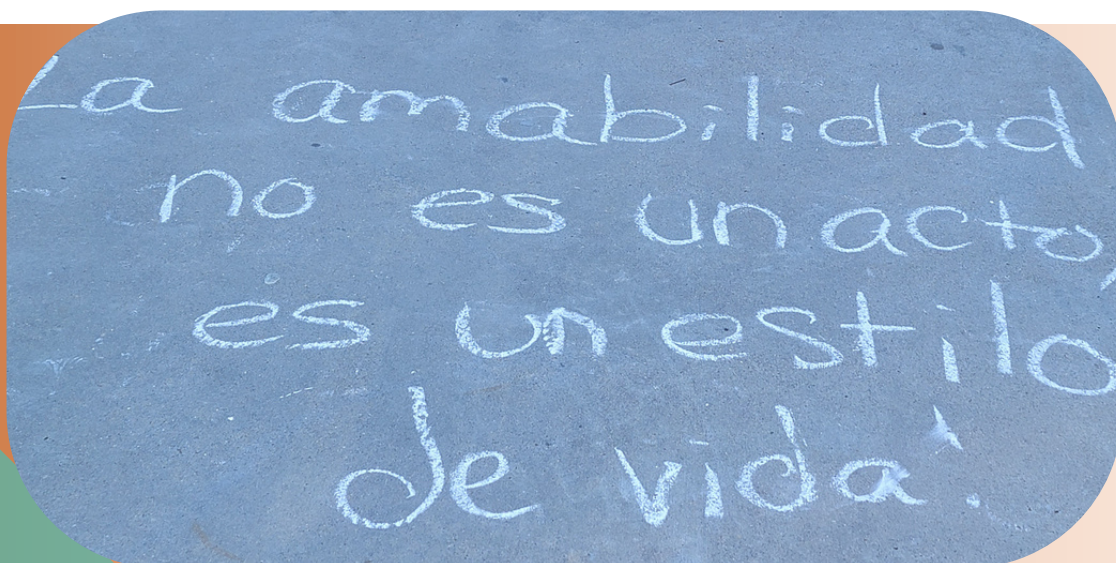 La amabilidad
no es un acto,
es un estilo
de vida.